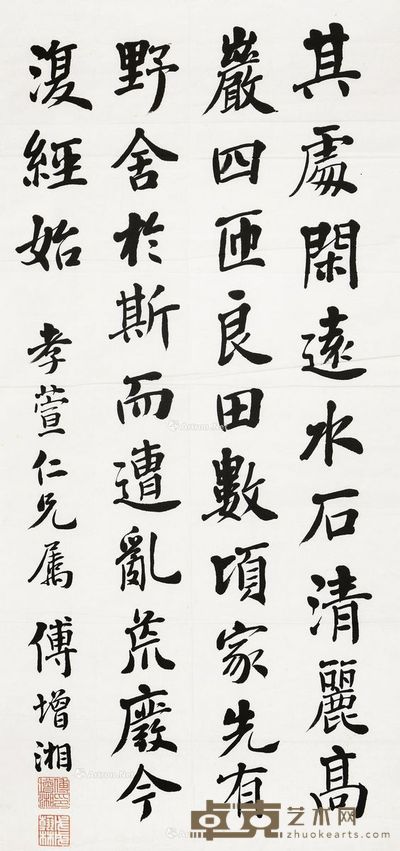 其處閑遠水石清麗高
巖四匝良田數頃家先有
野舍於斯而遭亂荒廢今
復經始
孝萱仁兄屬 傅增湘
卓克艺术网
zhuokearts.com